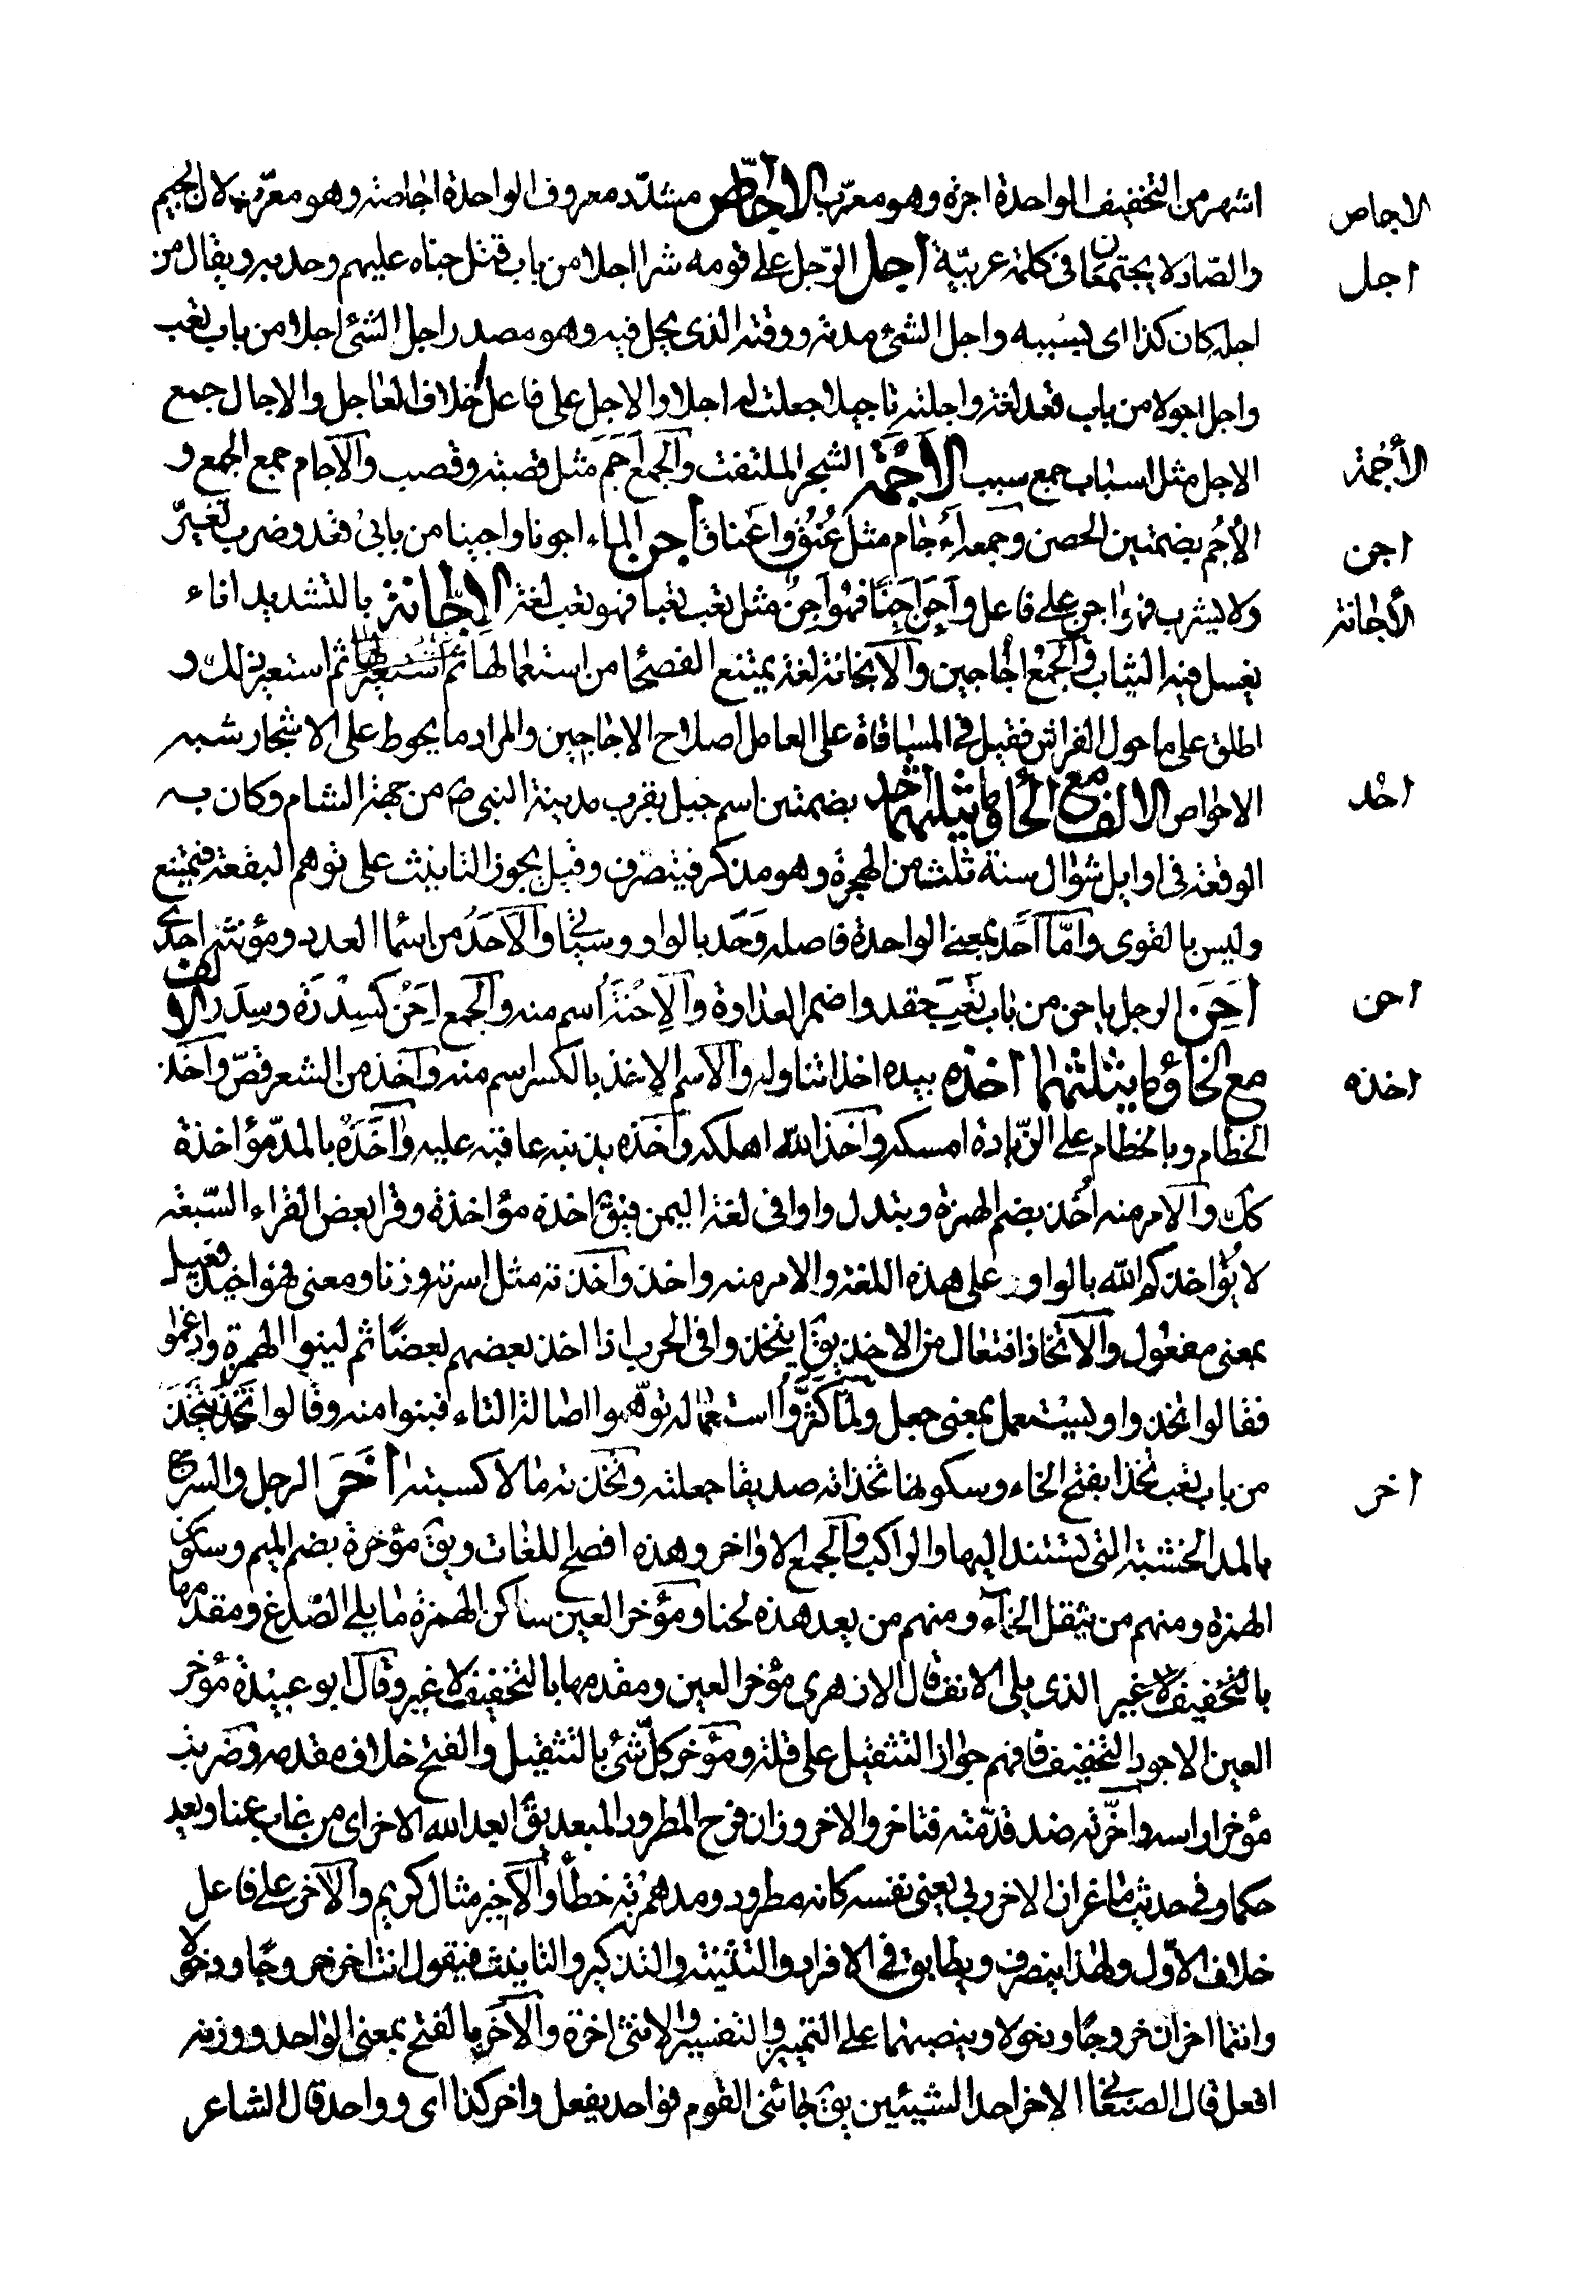 اشهر من التخفيف الواحدة اجرة وهو معرّب الاجّاص مشدّد معروف الواحدة اجاصة وهو معرّب لان الجيم
الاجاص
والصّاد لا يجتمعان فى كلمة عربيّة اجل الرّجل على قومه شرا اجلا من باب قتل جناه عليهم وجلبه ويقال من
اجل
اجله كان كذا اى بسببه واجل الشئ مدته ووقته الذى يحل فيه وهو مصدر اجل الشئ اجلا من باب تعب
واجل اجولا من باب قعد لغة واجلته تاجيلا جعلت له اجلا والاجل على فاعل خلاف العاجل والاجال جمع
الاجل مثل اسباب جمع سبب الاجمة الشجر الملتفت والجمع اجم مثل قصبة وقصب والآجام جمع الجمع و
الأجمة
الأجُم بضمتين الحصن وجمعه اۤجام مثل عُنُق واعناق اجن الماء اجونا واجنا من بابى قعد وضرب تغيرّ
اجن
ولا يشرب فهو اجن على فاعل واَجِنَ اَجَنًا فهو اَجِنٌ مثل تعب تعبا فهو تعب لغة الاِجّانة بالتشديد اناء
الأجانة
يغسل فيه الثياب والجمع اجاجين والانجانة لغة يمتنع الفصحا من استعمالها ثم استعير ثم استعير ذلك و
اطلق على ما حول الغراس فقيل فى المساقاة على العامل اصلاح الاجاجين والمراد ما يحوط على الاشجار شبه
الاحواص الالف مع الحاؤ ما يثلثهما احُد بضمتين اسم جبل بقرب مدينة النبى ص من جهة الشام وكان به
احُد
الوقعة فى اوايل شوال سنة ثلث من الهجرة وهو مذكر فيتصرف وقيل يجوز التانيث على توهم البقعة فيمتنع
وليس بالقوى وامّا اَحَد بمعنى الواحدة فاصله وَحَد بالواو وسياتى والاَحَدُ من اسما العدد ومؤنثه احدى
اَحِنَ الرجل ياحن من باب تَعِبَ حقد واضمر العداوة والاِحْنَة اسم منه والجمع اِحَن كَسِدْرَة وسِدَر الالف
احن
مع الخاؤ ما يثلثهما اخذه بيده اخذا تناوله والاسم الاخذ بالكسر اسم منه واَخَذ من الشعر قصّ واَخَذ
اخذه
الخطام وبالخطام على الزّيادة امسكه واَخَذ الله اهلكه واَخَذه بذنبه عاقبه عليه واٰخَذَهُ بالمدّ مؤاخذة
كك والامر منه اُخذ بضم الهمزة وتبدل واوا فى لغة اليمن فيق واخذة مؤاخذة وقرا بعض القراء السّبعة
لا يُؤاخذكم الله بالواو على هذه اللغة والامر منه واخذ واخذته مثل اسرته وزنا ومعنى فهو اخيذ فعيل
بمعنى مفعول والاتخاذ افتعال من الاخذ يق ايتخذوا فى الحرب اذا اخذ بعضهم بعضًا ثم لينوا الهمزة وادغموا
فقالوا اتخذوا ويستعمل بمعنى جعل ولمّا كَثُرَ استعماله توهّموا اصالة التاء فبنوا منه وقالوا تَخِذَ يَتْخَذُ
من باب تعب تخذا بفتح الخاء وسكونها تخذته صديقا جعلته وتخذته مالا كسبته اخر الرجل والسرج
اخر
بالمد الخشبة التى يستند اليها الراكب والجمع الاواخر وهذه افصح اللغات ويق مؤخرة بضم الميم وسكون
الهمزة ومنهم من يثقل الخاۤء ومنهم من يعد هذه لحنا ومؤخر العين ساكن الهمزة ما يلى الصّدغ ومقدمها
بالتخفيف لا غير الذى يلى الانف قال الازهرى مؤخر العين ومقدمها بالتخفيف لا غير وقال ابو عبيدة مؤخر
العين الاجود التخفيف فافهم جواز التثقيل على قلة ومؤخر كلّ شئ بالتثقيل والفتح خلاف مقدمه وضربت
مؤخر راسه واخّرته ضد قدّمته فتاخر والاخر وزان فرح المطرود المبعد يق ابعد الله الاخر اى من غاب عنا وبعد
حكما وفى حديث ماعز ان الاخر زنى يعنى نفسه كانه مطرود ومد همزته خطأ والاَخير مثال كريم والآخر على فاعل
خلاف الاوّل ولهذا ينصرف ويطابق فى الافراد والتثنية والتذكير والتانيث فيقول انت اخر خروجًا ودخولا
وانتما اخران خروجًا ودخولا وينصبهما على التمييز والتفسير والانثى اخرة والآخَر بالفتح بمعنى الواحد ووزنه
افعل قال الصنعانى الاخر احد الشيئين يق جائنى القوم فواحد يفعل واخر كذا اى وواحد قال الشاعر